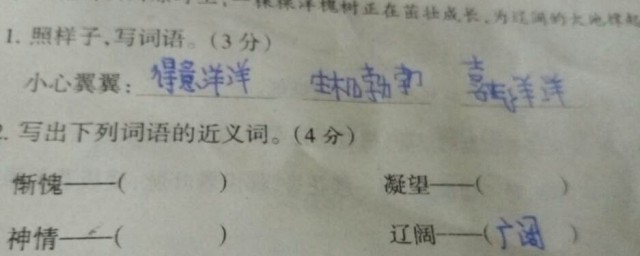 一棵棵洋槐树正在茁壮成长,为辽阔的大地撑起
1. 照样子,写词语。(3分)
小心翼翼: 得意洋洋 生机勃勃 喜气洋洋
2. 写出下列词语的近义词。(4分)
惭愧——( ) 凝望——( )
神情——( ) 辽阔——(广阔)